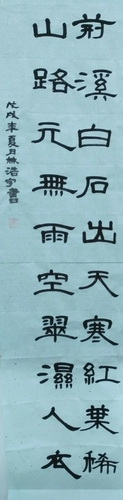 荊溪白石出天寒紅葉稀
山路元無雨空翠濕人衣
戊戌季夏月林浩宇書